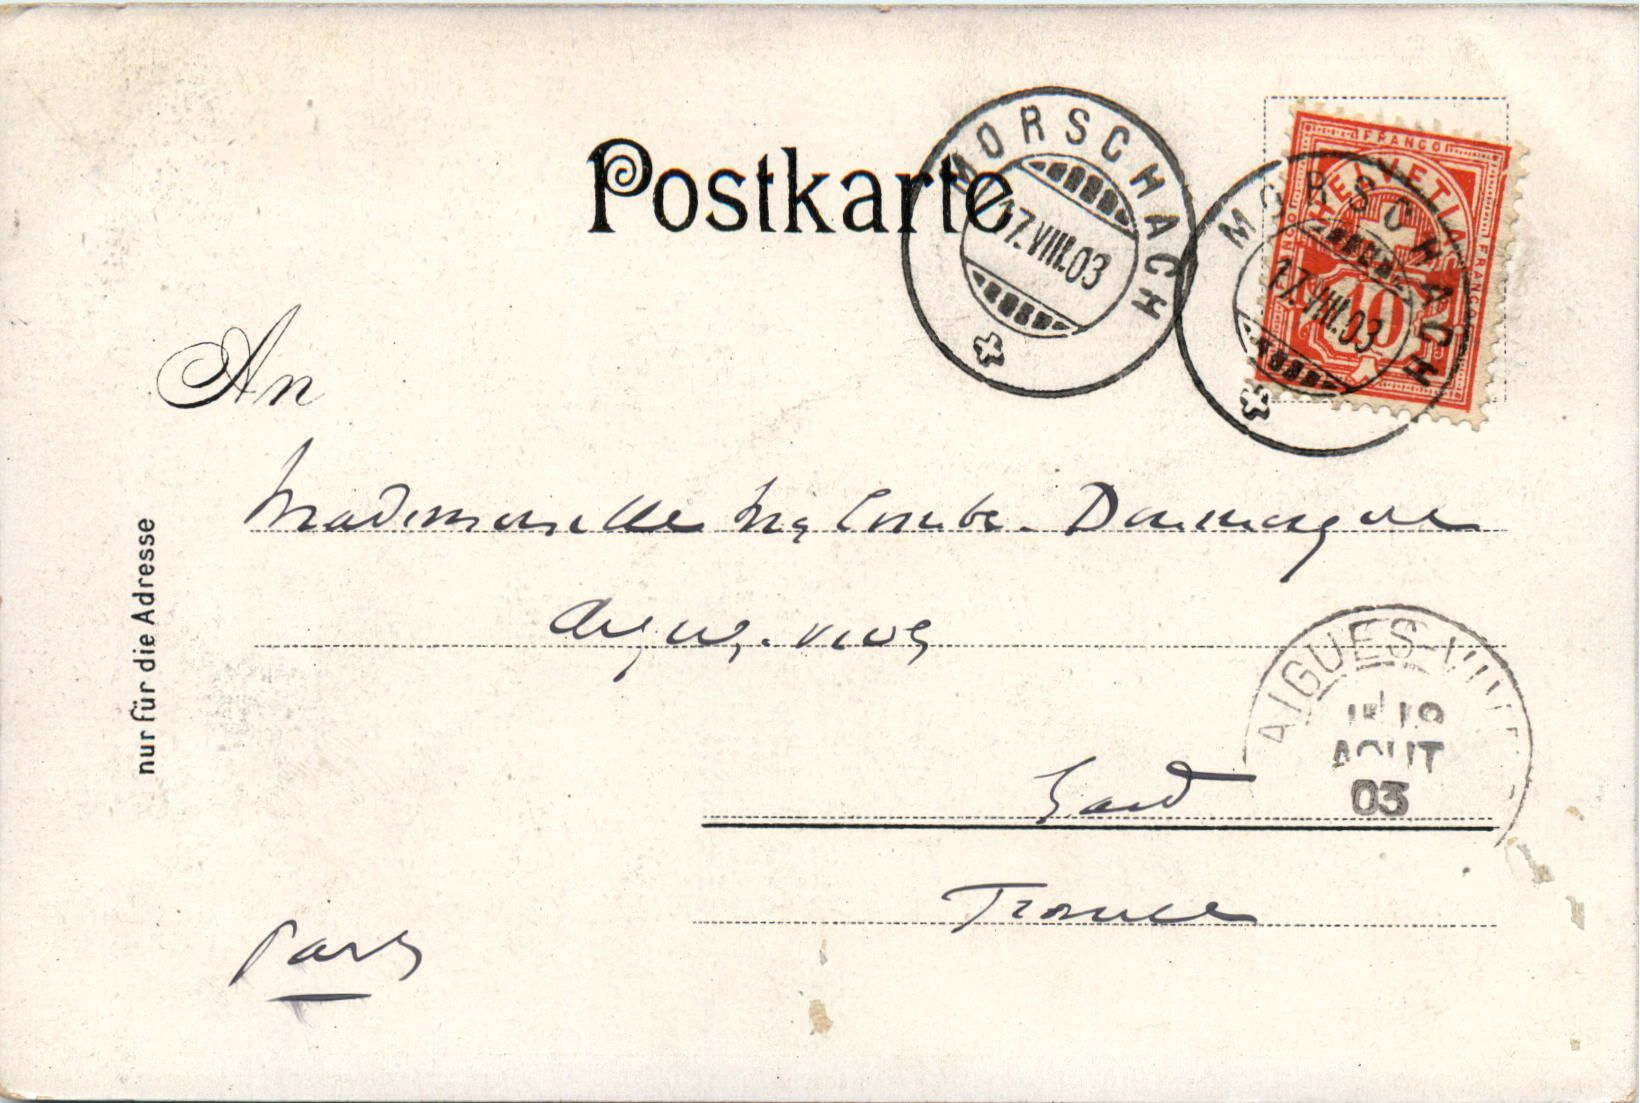 Postkarte
MORSCHACH
17.VIII.03
MORSCHACH
17.VIII.03
FRANCO
HELVETIA
FRANCO
FRANCO
10
An
Mademoiselle Combe. Daumergue
Aigues.vives
nur für die Adresse
AIGUES-VIVES
AOUT
03
Gard
France